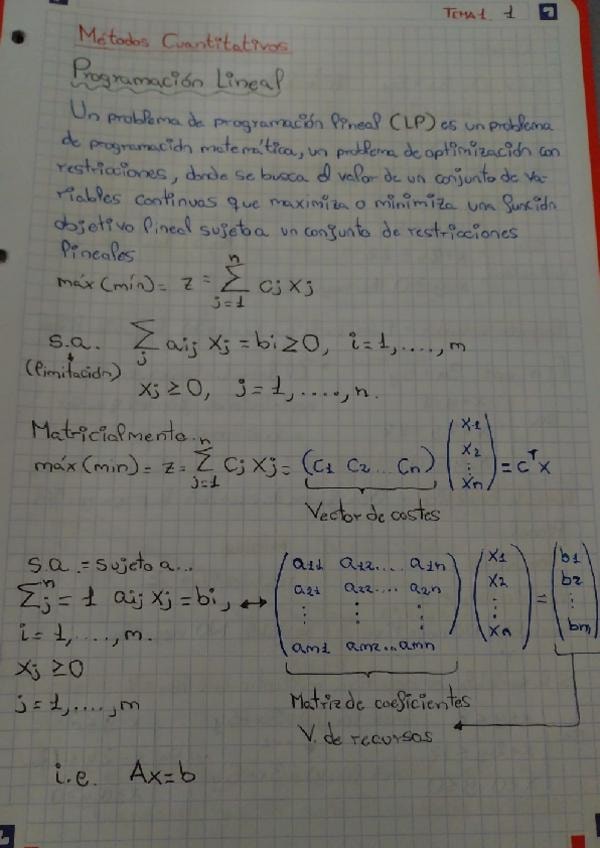 TEMA 1 1
Métodos Cuantitativos
Programación Lineal
Un problema de programación lineal (LP) es un problema
de programación matemática, un problema de optimización con
restricciones, donde se busca el valor de un conjunto de va-
riables continuas que maximiza o minimiza una función
objetivo lineal sujeto a un conjunto de restricciones
lineales
máx (mín) = z = ∑_{j=1}^{n} cj xj
s.a. ∑_j aij xj = bi ≥ 0, i = 1, ...., m
(limitación)
xj ≥ 0, j = 1, ...., n.
Matricialmente.
máx (min) = z = ∑_{j=1}^{n} cj xj = (c1 c2 ... cn) (x1 x2 ⋮ xn) = c^T x
Vector de costes
s.a. = sujeto a...
∑_j^n = 1 aij xj = bi, ↔ (a11 a12.... a1n
a21 a22.... a2n
⋮ ⋮ ⋮
am1 am2.. amn) (x1 x2 ⋮ xn) = (b1 b2 ⋮ bm)
i = 1, ...., m.
xj ≥ 0
j = 1, ...., m
Matriz de coeficientes
V. de recursos
i.e. Ax = b